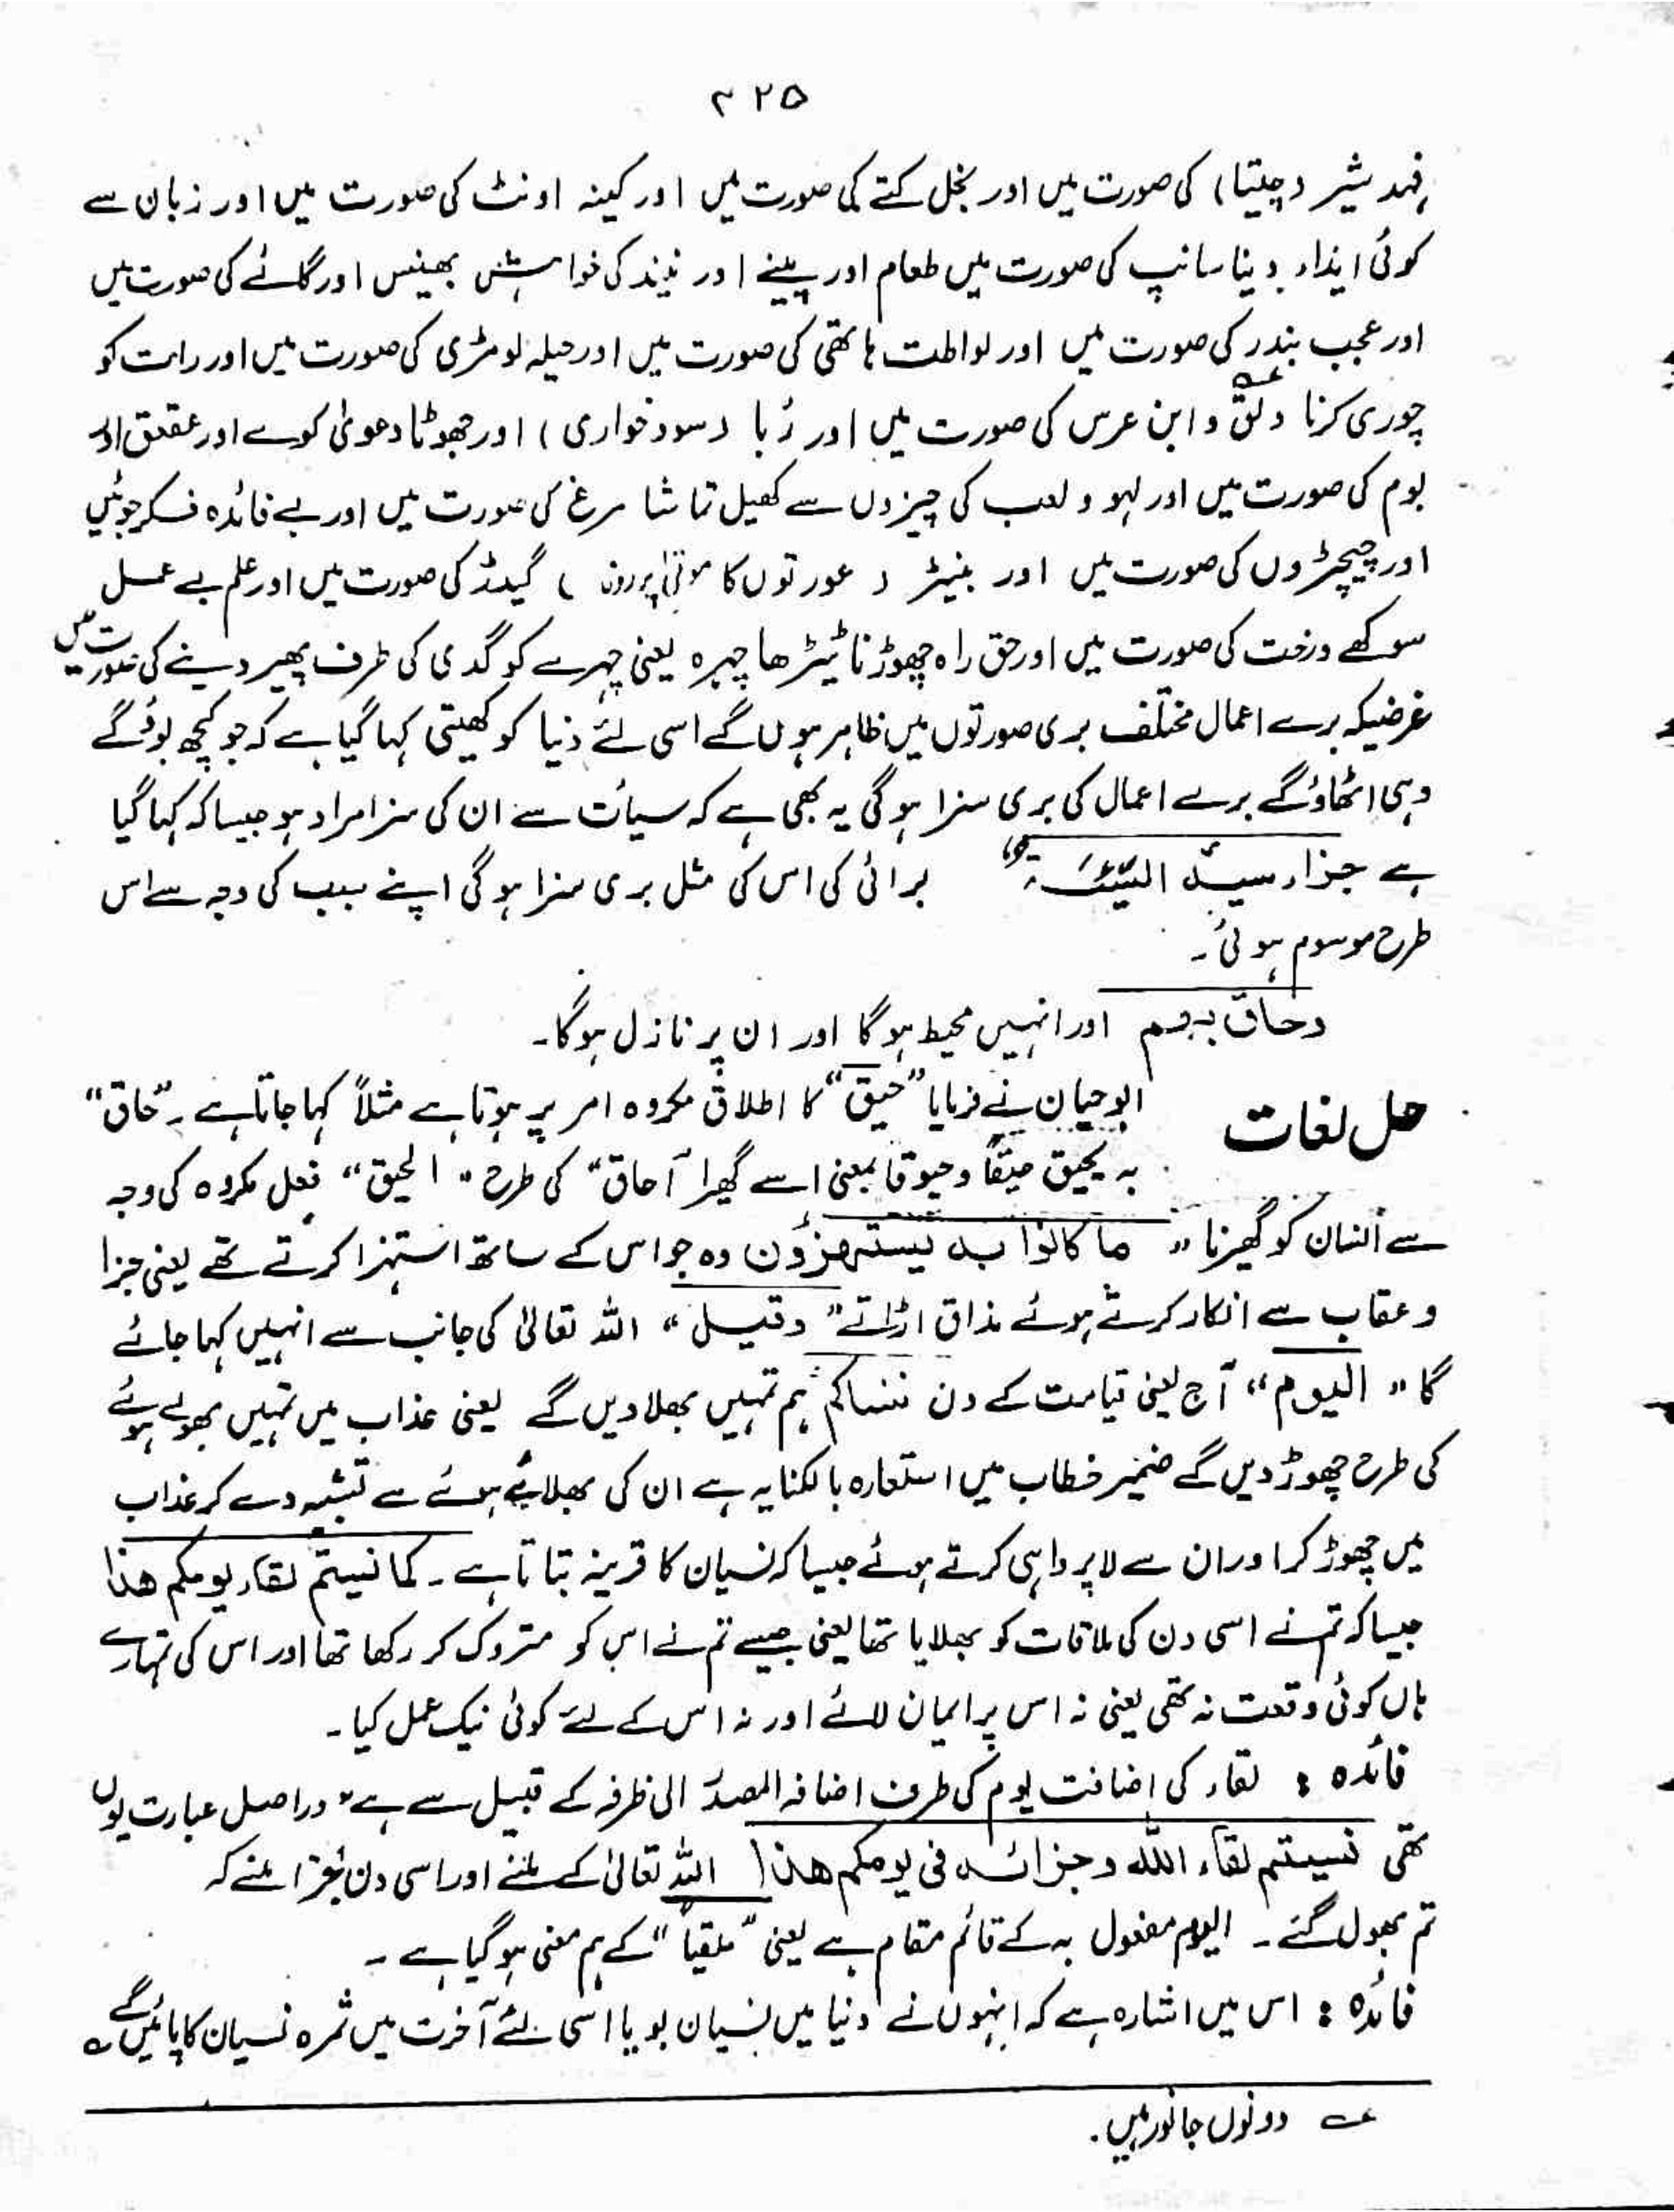 ۲۲۵
فہد شیر (چیتا) کی صورت میں اور بخل کتے کی صورت میں اور کینہ اونٹ کی صورت میں اور زبان سے
کوئی ایذاء دینا سانپ کی صورت میں طعام اور پینے اور نیند کی خواہش بھینس اور گائے کی صورت میں
اور عجب بندر کی صورت میں اور لواطت ہاتھی کی صورت میں اور حیلہ لومڑی کی صورت میں اور رات کو
چوری کرنا دلق و ابن عرس کی صورت میں اور رُبا (سود خواری) اور جھوٹا دعویٰ کوے اور عقعق اور
بوم کی صورت میں اور لہو و لعب کی چیزوں سے کھیل تماشا مرغ کی صورت میں اور بے فائدہ فکر جوئیں
اور چیچڑوں کی صورت میں اور (عورتوں کا ) گیدڈ کی صورت میں اور علم بے عمل
سوکھے درخت کی صورت میں اور حق راہ چھوڑنا ٹیڑھا چہرہ یعنی چہرے کو گدی کی طرف پھیر دینے کی صورت میں
غرضیکہ برے اعمال مختلف بری صورتوں میں ظاہر ہوں گے اسی لئے دنیا کو کھیتی کہا گیا ہے کہ جو کچھ بوؤ گے
وہی اٹھاؤ گے برے اعمال کی بری سزا ہوگی یہ بھی ہے کہ سیأت سے ان کی سزا مراد ہو جیسا کہ کہا گیا
ہے جزاء سیۂ السّیّئَۃ" برائی کی اس کی مثل بری سزا ہوگی اپنے سبب کی وجہ سے اس
طرح موسوم ہوئی۔
وحاق بہم اور انہیں محیط ہوگا اور ان پر نازل ہوگا۔
حل لغات ابو حیان نے فرمایا "حیق" کا اطلاق مکروہ امر پر ہوتا ہے مثلاً کہا جاتا ہے۔ "حاق"
بہ یحیق حیقًا وحیوقا بمعنی اسے گھیرا آحاق" کی طرح "الحیق" فعل مکروہ کی وجہ
سے انسان کو گھیرنا" ما کانوا بہ یستہزؤن وہ جو اس کے ساتھ استہزا کرتے تھے یعنی جزا
و عقاب سے انکار کرتے ہوئے مذاق اڑاتے" وقیل" اللہ تعالیٰ کی جانب سے انہیں کہا جائے
گا "الیوم" آج یعنی قیامت کے دن ننساکم ہم تمہیں بھلا دیں گے یعنی عذاب میں تمہیں بھولے ہوئے
کی طرح چھوڑ دیں گے ضمیر خطاب میں استعارہ بالکنایہ ہے ان کی بھلائے ہوئے سے تشبیہ دے کر عذاب
میں چھوڑ کر اور ان سے لاپرواہی کرتے ہوئے جیسا کہ نسیان کا قرینہ بتاتا ہے۔ کما نسیتم لقاء یومکم ھذا
جیسا کہ تم نے اسی دن کی ملاقات کو بھلایا تھا یعنی جیسے تم نے اس کو متروک کر رکھا تھا اور اس کی تمہارے
ہاں کوئی وقعت نہ تھی یعنی نہ اس پر ایمان لائے اور نہ اس کے لئے کوئی نیک عمل کیا۔
فائدہ : لقاء کی اضافت یوم کی طرف اضافہ المصدر الی ظرفہ کے قبیل سے ہے" دراصل عبارت یوں
تھی نسیتم لقاء اللہ وجزائہ فی یومکم ھذا اللہ تعالیٰ کے ملنے اور اسی دن جزا ملنے کہ
تم بھول گئے۔ الیوم مفعول بہ کے قائم مقام ہے یعنی "ملقیا" کے ہم معنی ہو گیا ہے۔
فائدہ : اس میں اشارہ ہے کہ انہوں نے دنیا میں نسیان بویا اسی لئے آخرت میں ثمرہ نسیان کا پائیں گے
؎ دونوں جانور ہیں۔